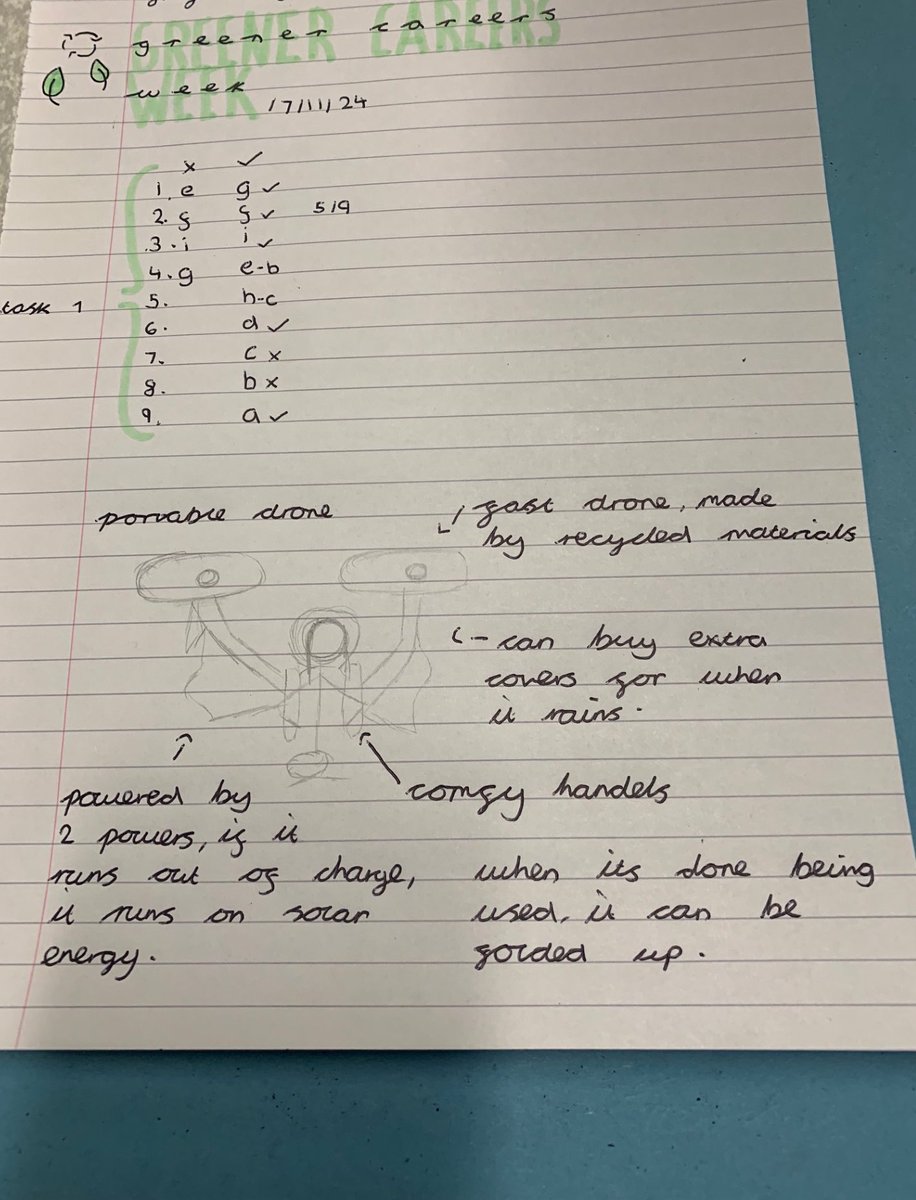 GREENER CAREERS
greener careers
WEEK
week 17/11/24
x ✓
1. e g ✓
2. f f ✓ 5/9
3. i i ✓
4. g e-b
task 1
5. h-c
6. d ✓
7. c x
8. b x
9. a ✓
portable drone
fast drone, made
by recycled materials
can buy extra
covers for when
it rains.
comfy handels
powered by
2 powers, if it
runs out of charge,
it runs on solar
energy.
when its done being
used, it can be
folded up.